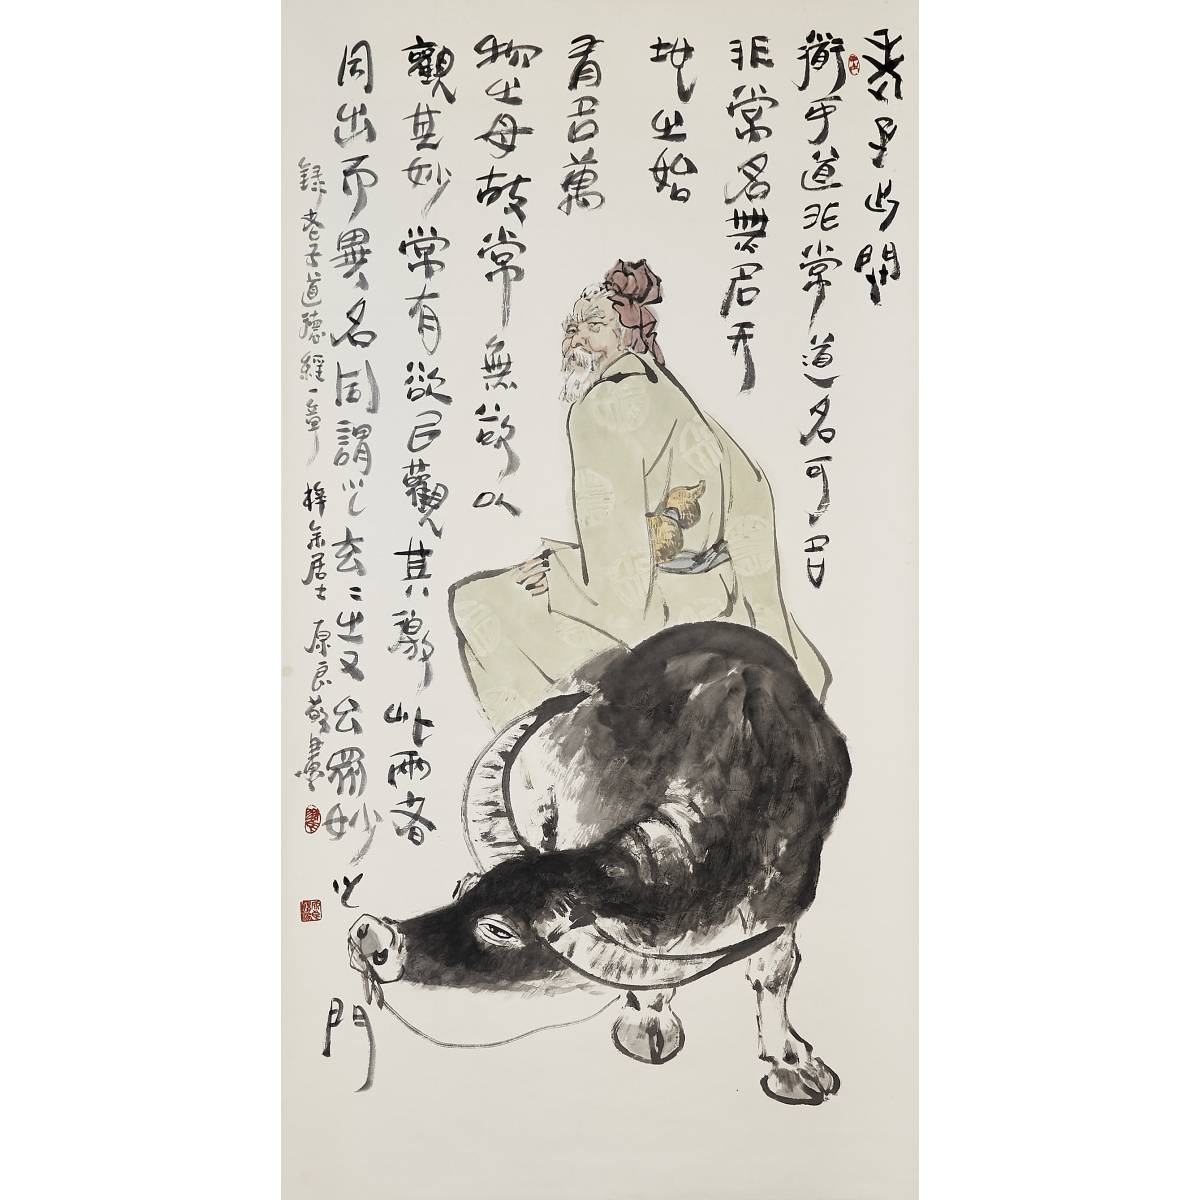 老子出關
衜可道非常道名可名
非常名無名天
地之始
有名萬
物之母故常無欲以
觀其妙常有欲已觀其徼此兩者
同出而異名同謂之玄玄之又玄眾妙之
門
錄老子道德經一章 梓余居士原良敬畫